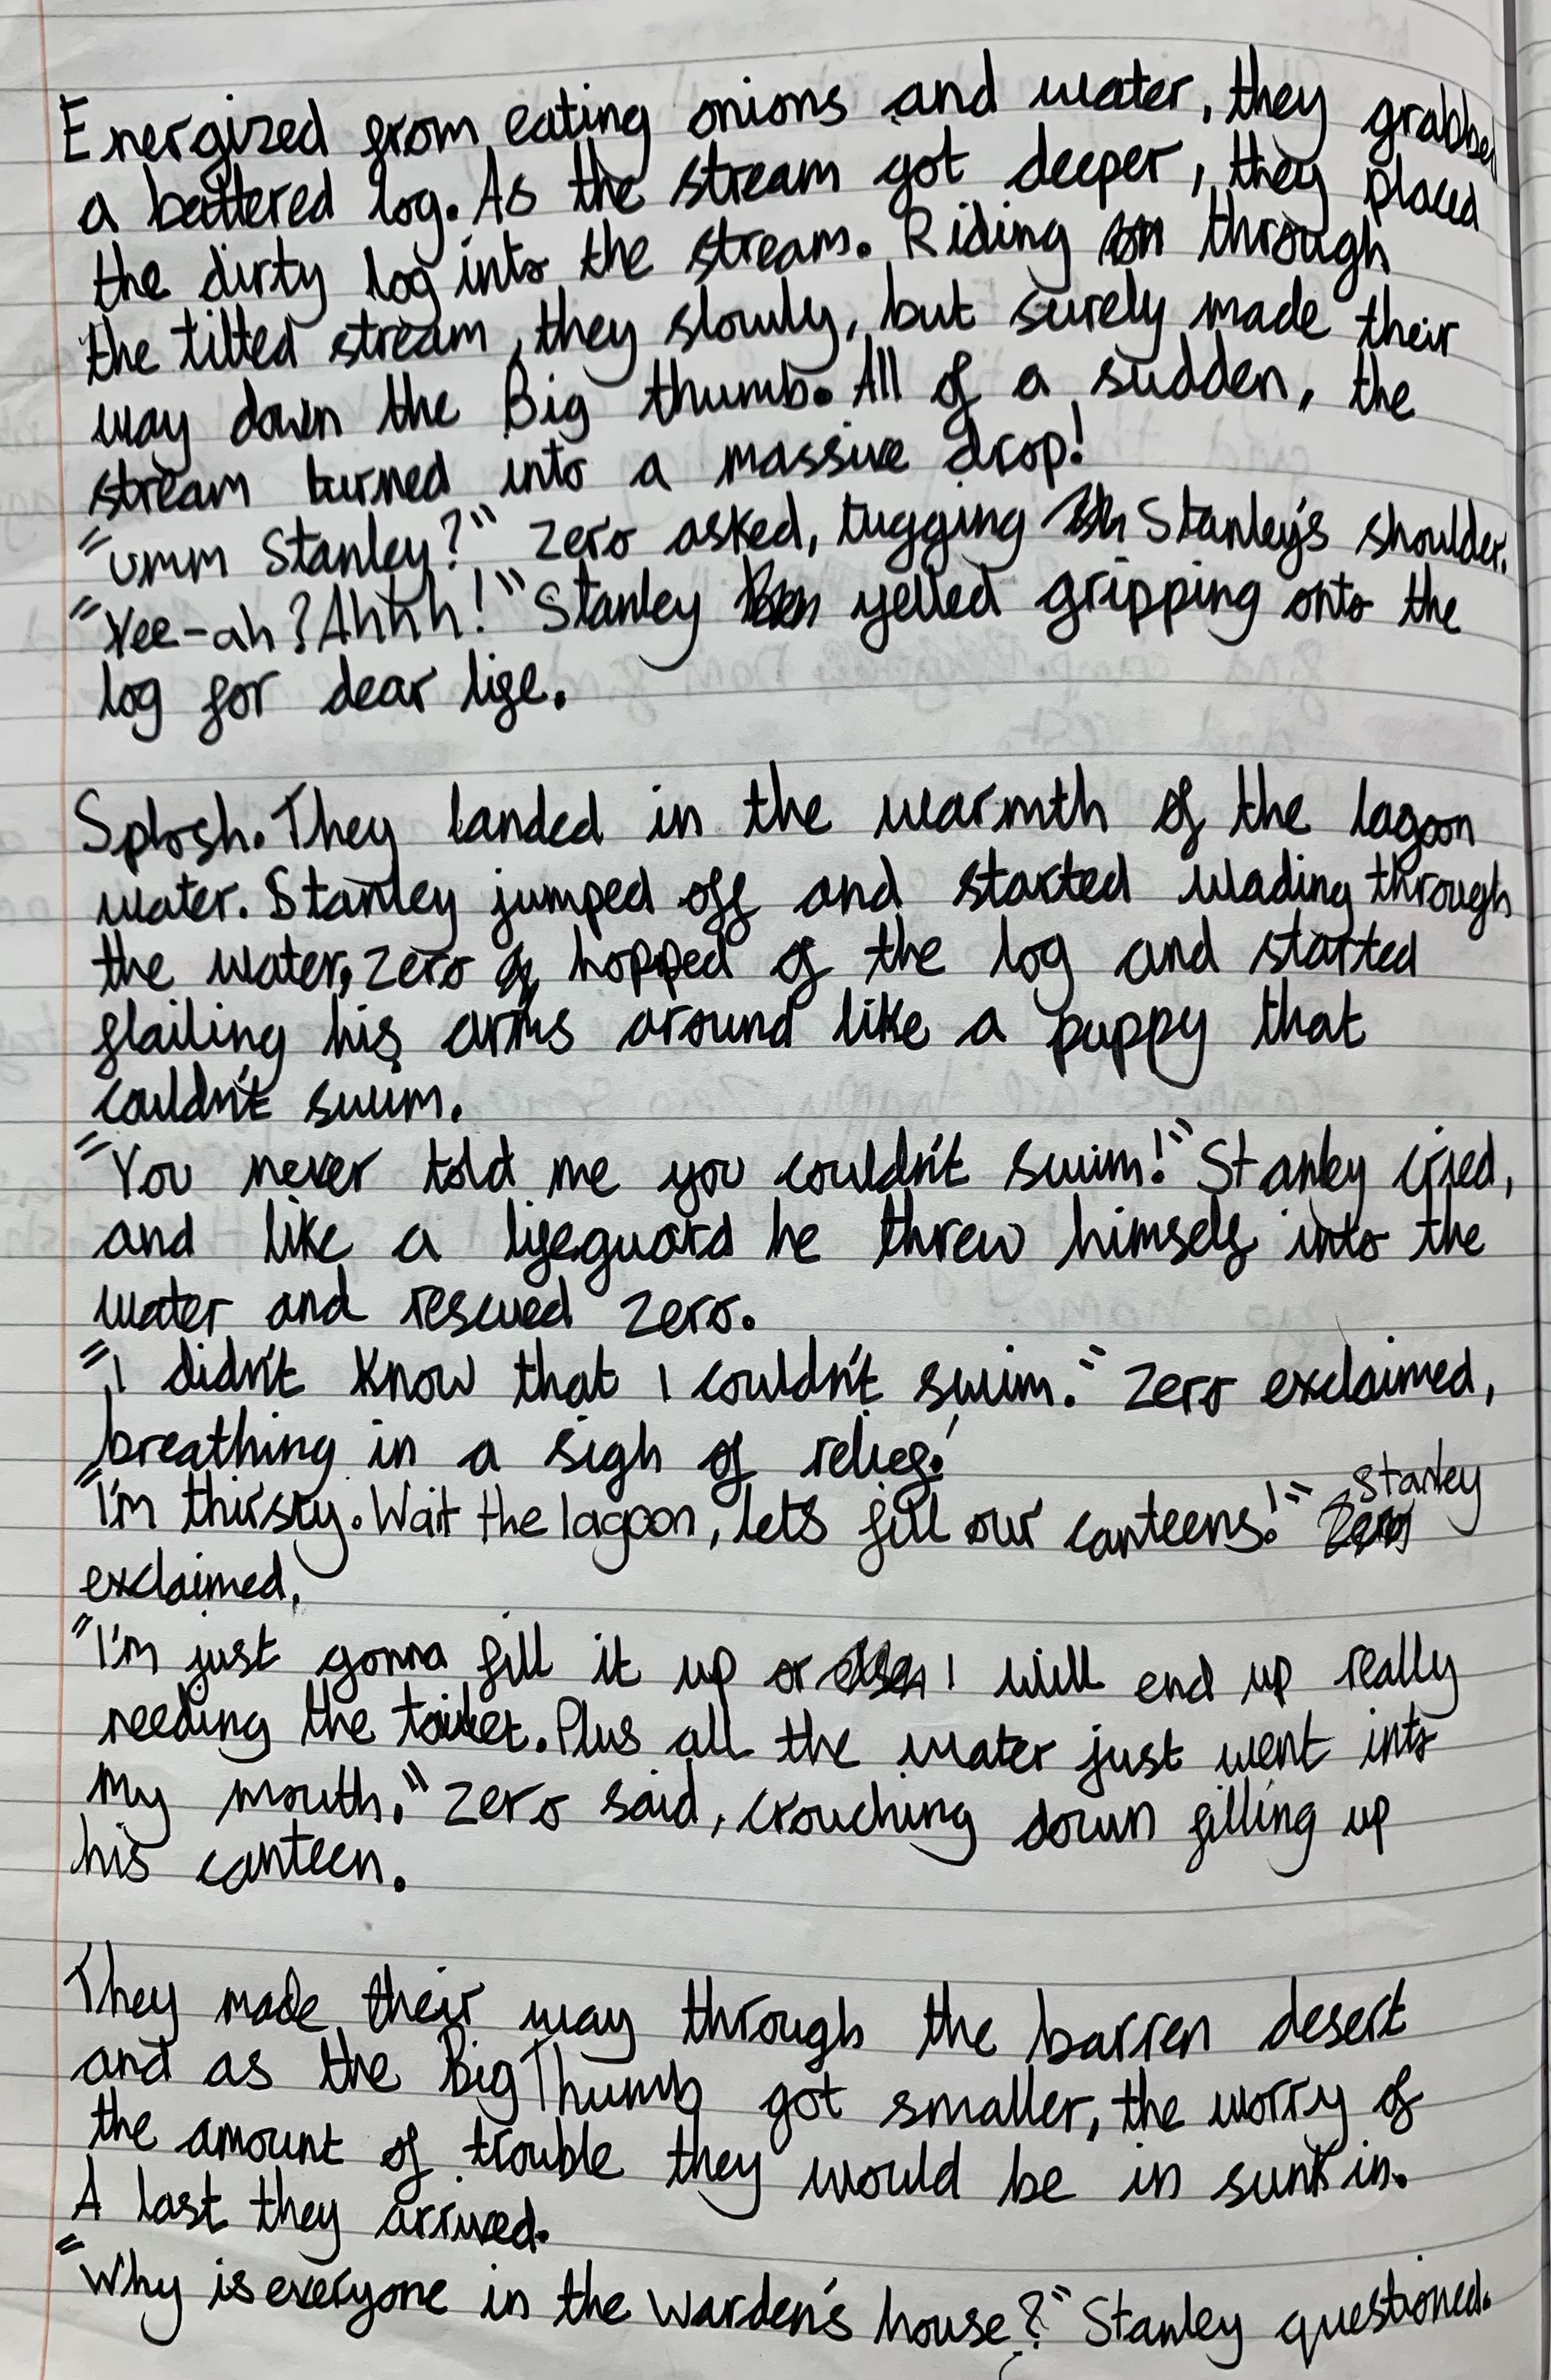 Energized from eating onions and water, they grabbed
a battered log. As the stream got deeper, they placed
the dirty log into the stream. Riding through
the tilted stream, they slowly, but surely made their
way down the Big thumb. All of a sudden, the
stream turned into a massive drop!
"Umm Stanley?" Zero asked, tugging Stanley's shoulder.
"Yee-ah? Ahhh!" Stanley yelled gripping onto the
log for dear life.
Splosh. They landed in the warmth of the lagoon
water. Stanley jumped off and started wading through
the water, Zero hopped of the log and started
flailing his arms around like a puppy that
couldn't swim.
"You never told me you couldn't swim!" Stanley cried,
and like a lifeguard he threw himself into the
water and rescued Zero.
"I didn't know that I couldn't swim." Zero exclaimed,
breathing in a sigh of relief.
"I'm thirsty. Wait the lagoon, let's fill our canteens!" Stanley
exclaimed,
"I'm just gonna fill it up or I will end up really
needing the toilet. Plus all the water just went into
my mouth." Zero said, crouching down filling up
his canteen.
They made their way through the barren desert
and as the Big Thumb got smaller, the worry of
the amount of trouble they would be in sunk in.
A last they arrived.
"Why is everyone in the Warden's house?" Stanley questioned.